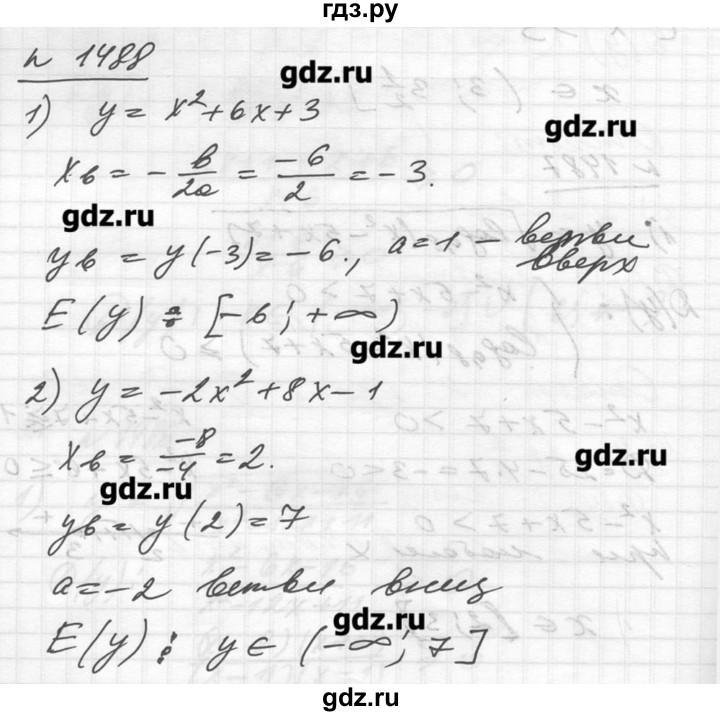 гдз.ру
n 1488
gdz.ru
1) y = x² + 6x + 3
gdz.ru
xв = - в/2a = -6/2 = -3.
gdz.ru
yв = y(-3) = -6., a = 1 - ветви вверх
E(y) : [-6; +∞)
gdz.ru
2) y = -2x² + 8x - 1
xв = -8/-4 = 2.
gdz.ru
gdz.ru
yв = y(2) = 7
a = -2 ветви вниз
gdz.ru
E(y) : y ∈ (-∞; 7]
gdz.ru